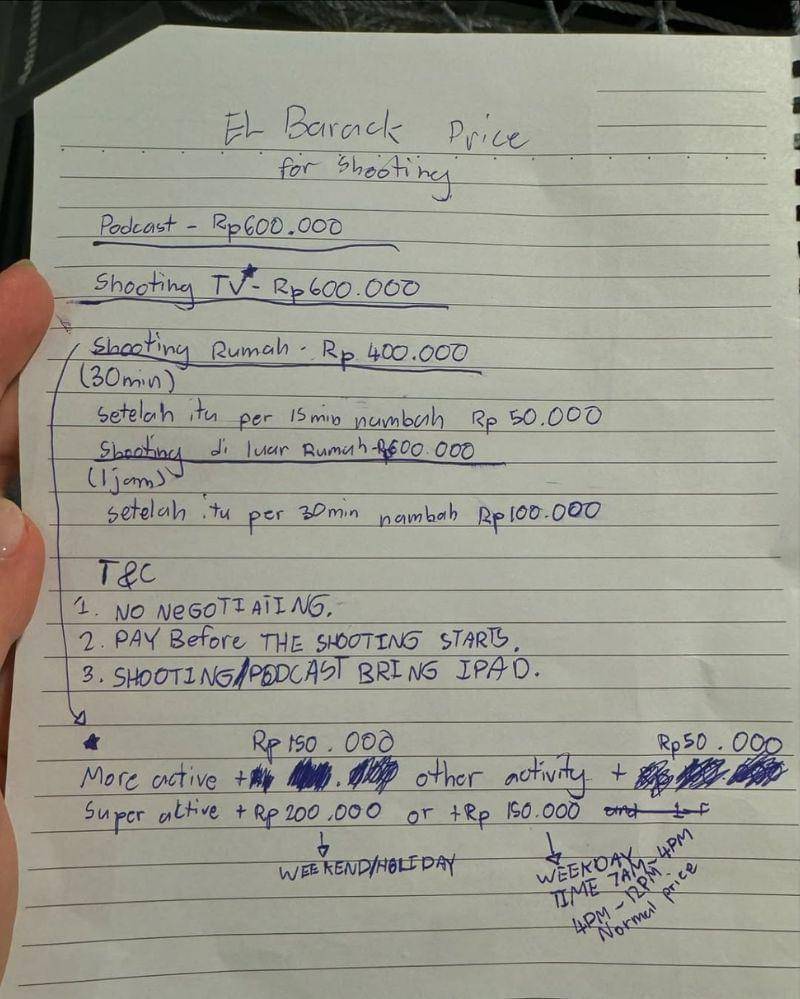 EL Barack Price
for shooting
Podcast - Rp600.000
Shooting TV★- Rp600.000
Shooting Rumah - Rp 400.000
(30min)
setelah itu per 15min nambah Rp 50.000
Shooting di luar Rumah-Rp600.000
(1jam)
setelah itu per 30min nambah Rp100.000
T&C
1. NO NeGOTIATING.
2. PAY Before THE SHOOTING STARTS.
3. SHOOTING/PODCAST BRING IPAD.
★ Rp 150.000 Rp50.000
More active + other activity +
Super aktive +Rp 200.000 or +Rp 150.000
WEEKEND/HOLIDAY
WEEKDAY
TIME 7AM-4PM
4PM-12PM-
Normal price